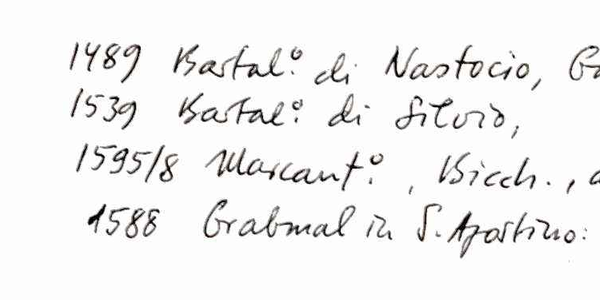 1489 Bartal.º di Nastocio, Ga
1539 Bartal.º di Silvio,
1595/8 Marcant.º, Bicch.,
1588 Grabmal in S. Agostino: